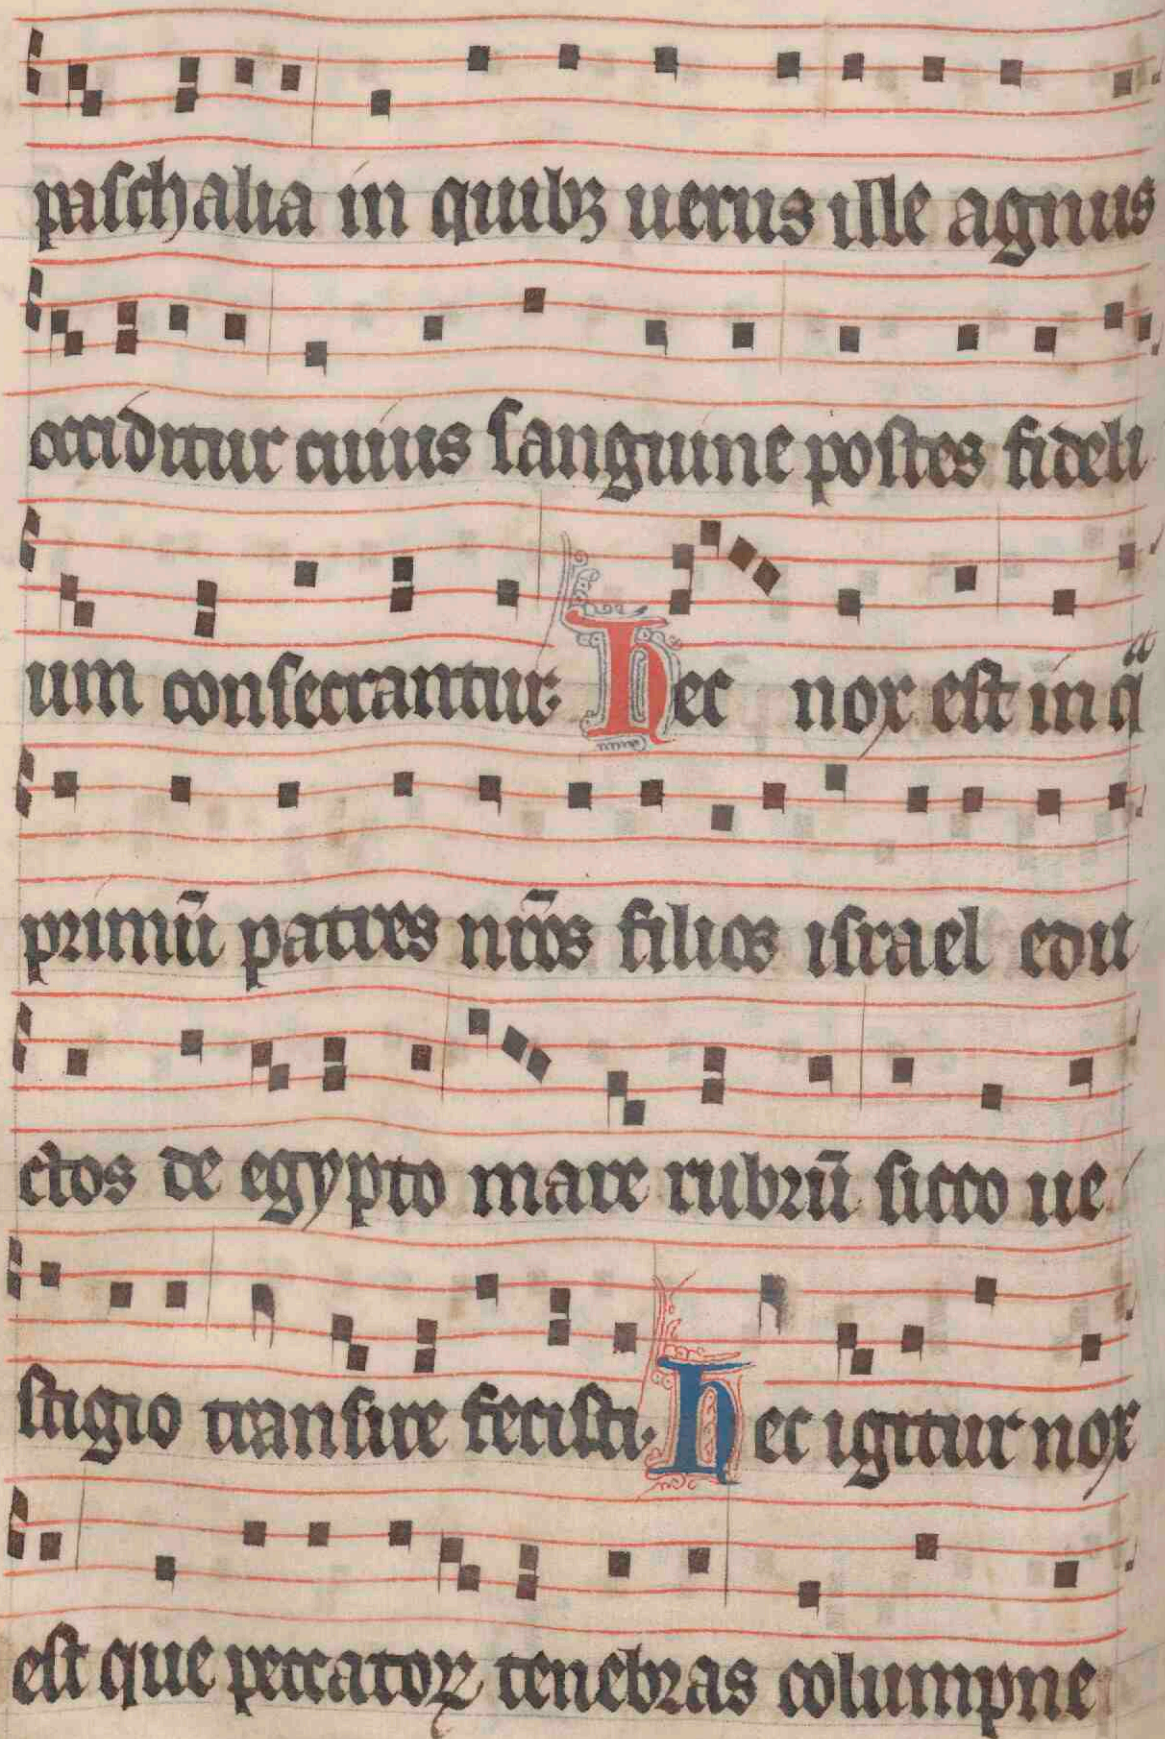 paschalia in quibꝫ uerus ille agnus
occiditur cuius sanguine postes fideli
um consecrantur. Hec nox est in qͣ
primū patres nr̄os filios israel edu
ctos de egypto mare rubrū sicco ue
stigio transire fecisti. Hec igitur nox
est que peccatoꝝ tenebras columpne